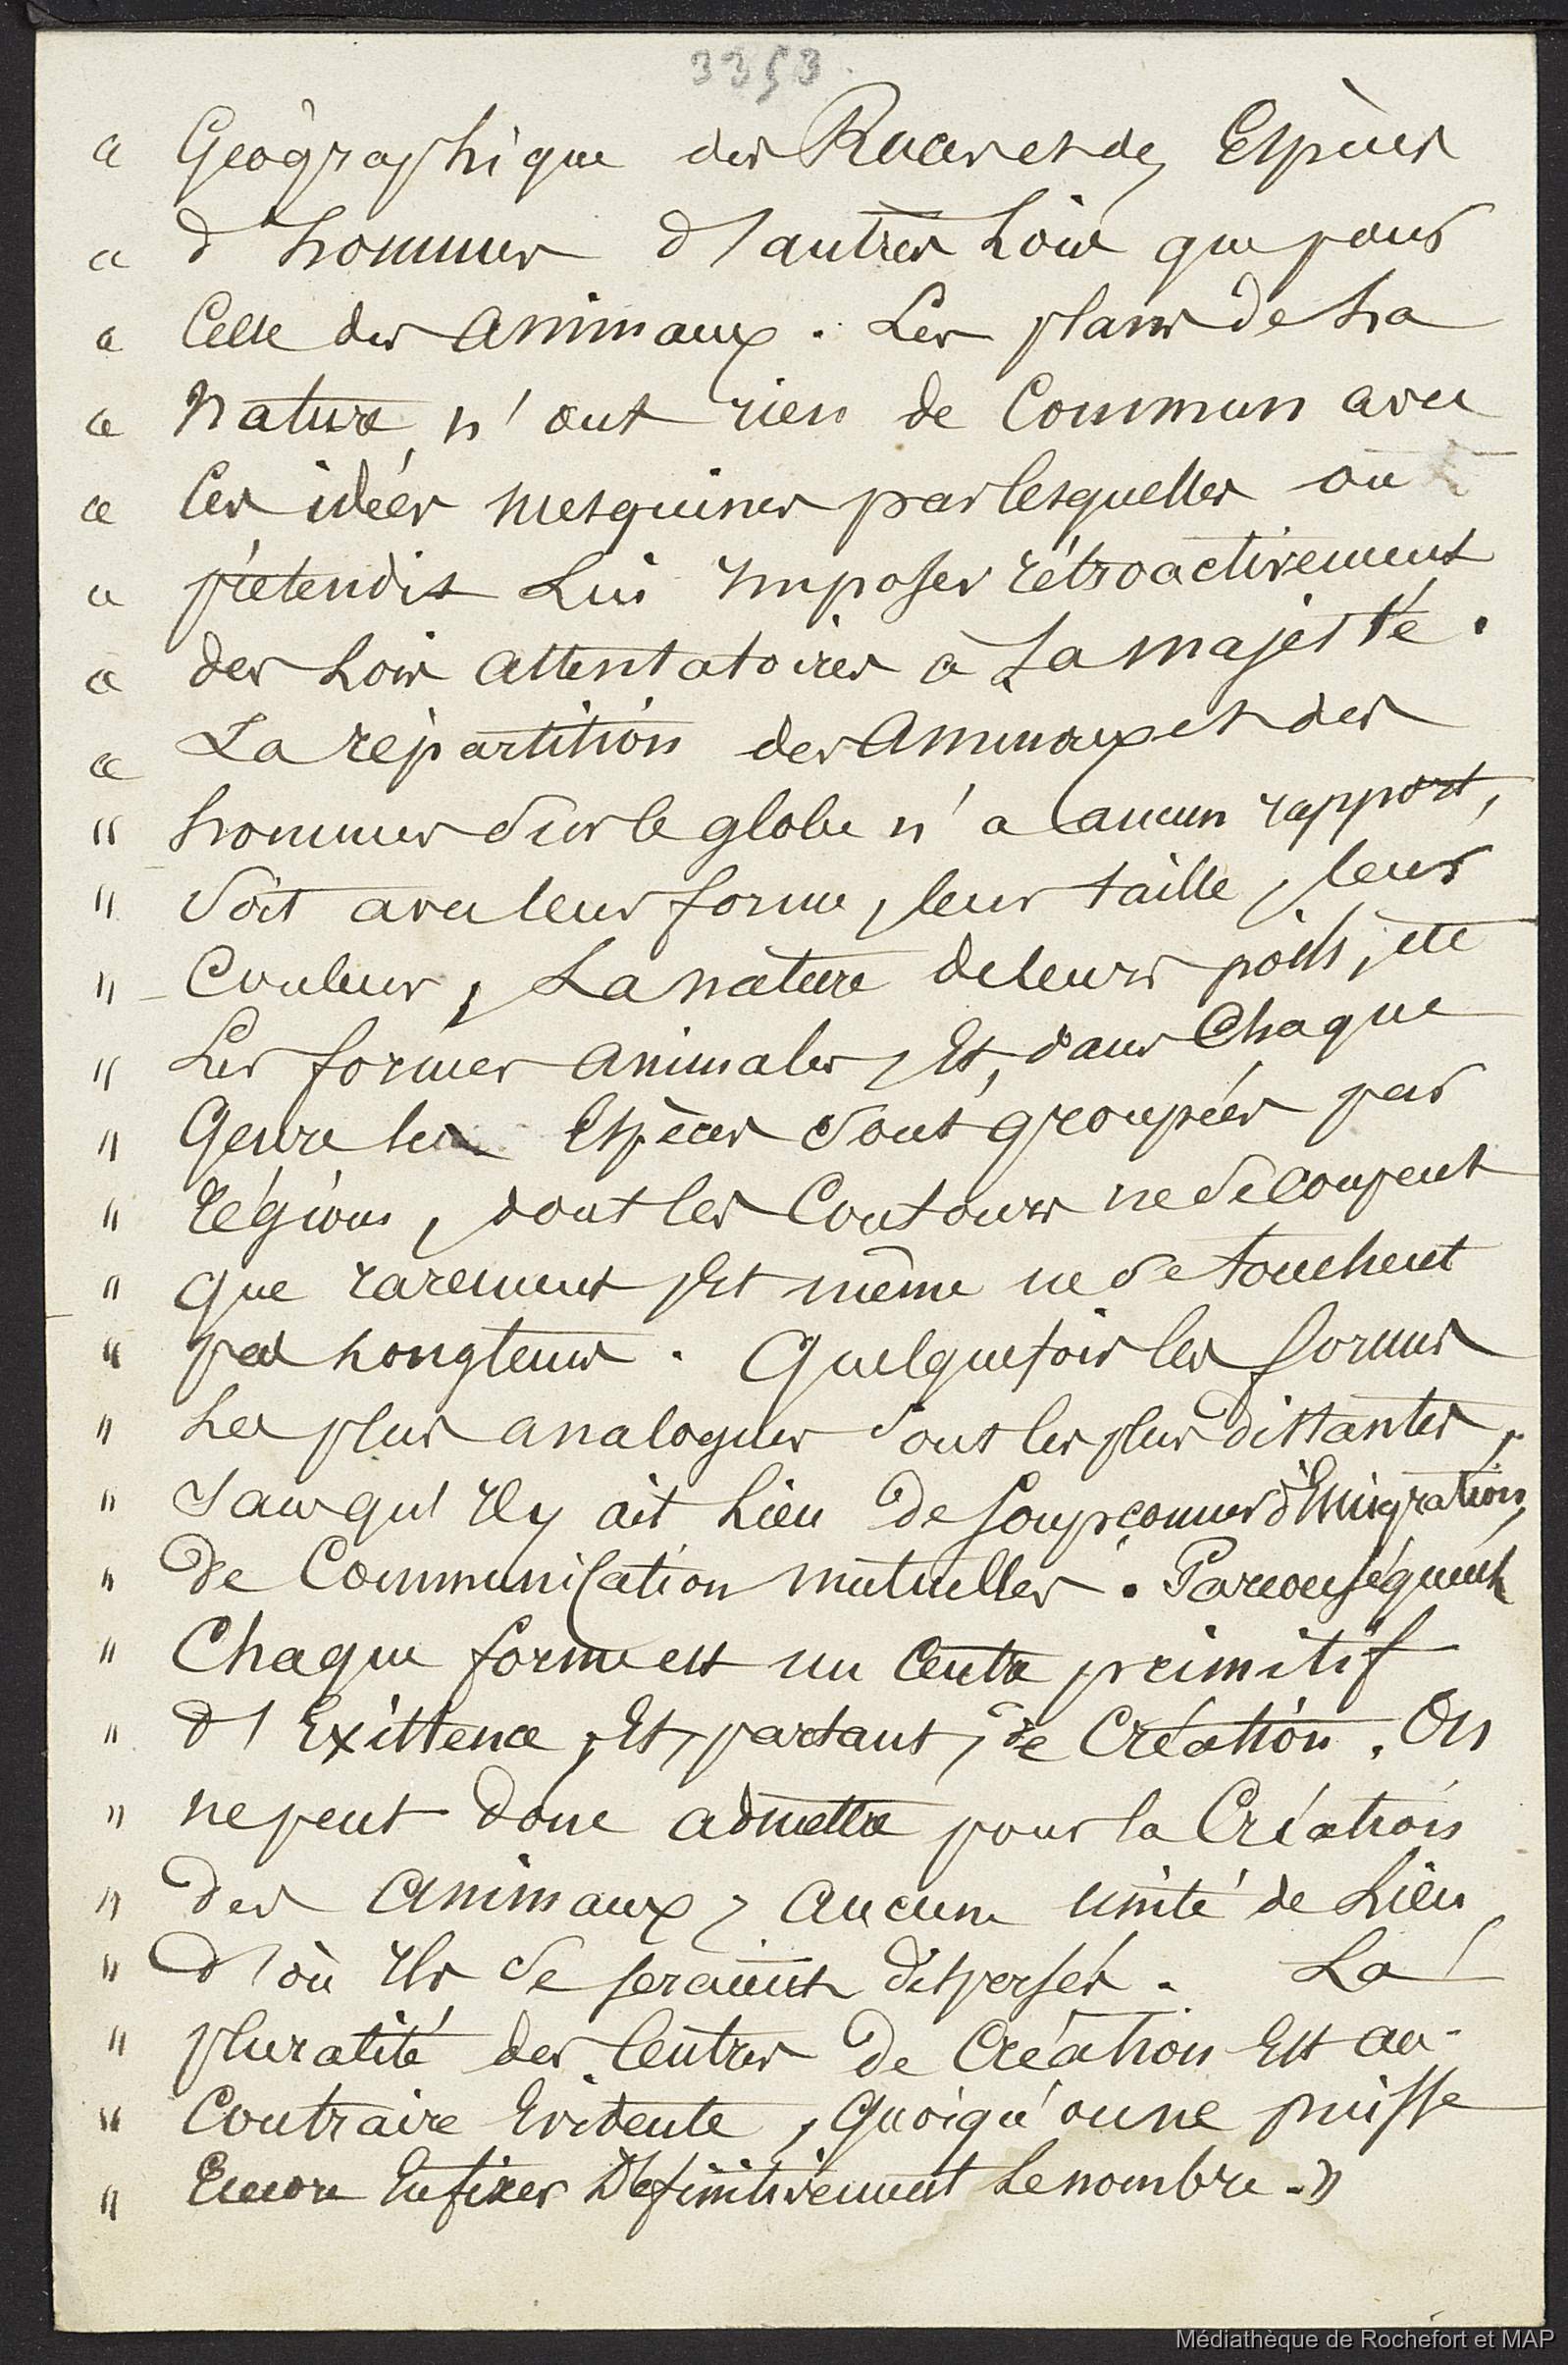 3353.
« Géographique des Races et des Espèces
« d'hommes d'autres Loix que pour
« Celle des Animaux. Les plans de La
« Nature n'ont rien de Commun avec
« Ces idées mesquines par lesquelles on
« prétendit Lui Imposer rétroactivement
« des Loix Attentatoires à Sa majesté.
« La répartition des Animaux et des
« hommes Sur le globe n'a aucun rapport,
« Soit avec leur forme, leur taille, leur
« Couleur, La nature de leurs poils, etc
« Les formes Animales, Et, dans Chaque
« Genre les Espèces Sont groupées par
« régions, dont les Contours ne Se Coupent
« que rarement, Et même ne Se touchent
« pas Longtems. Quelquefois les formes
« Les plus analogues Sont les plus distantes,
« Sans qu'Il y ait Lieu de Soupçonner d'Emigration,
« de Communication mutuelles. Par conséquent
« Chaque forme est un Centre primitif
« d'Existence, Et, partant, de Création. On
« ne peut donc admettre pour la Création
« des Animaux, Aucune unité de Lieu
« D'où Ils Se seraient dispersés. La
« pluralité des Centres de Création Est au-
« Contraire Evidente, Quoiqu'on ne puisse
« Encore En fixer Définitivement Le nombre. »
Médiathèque de Rochefort et MAP